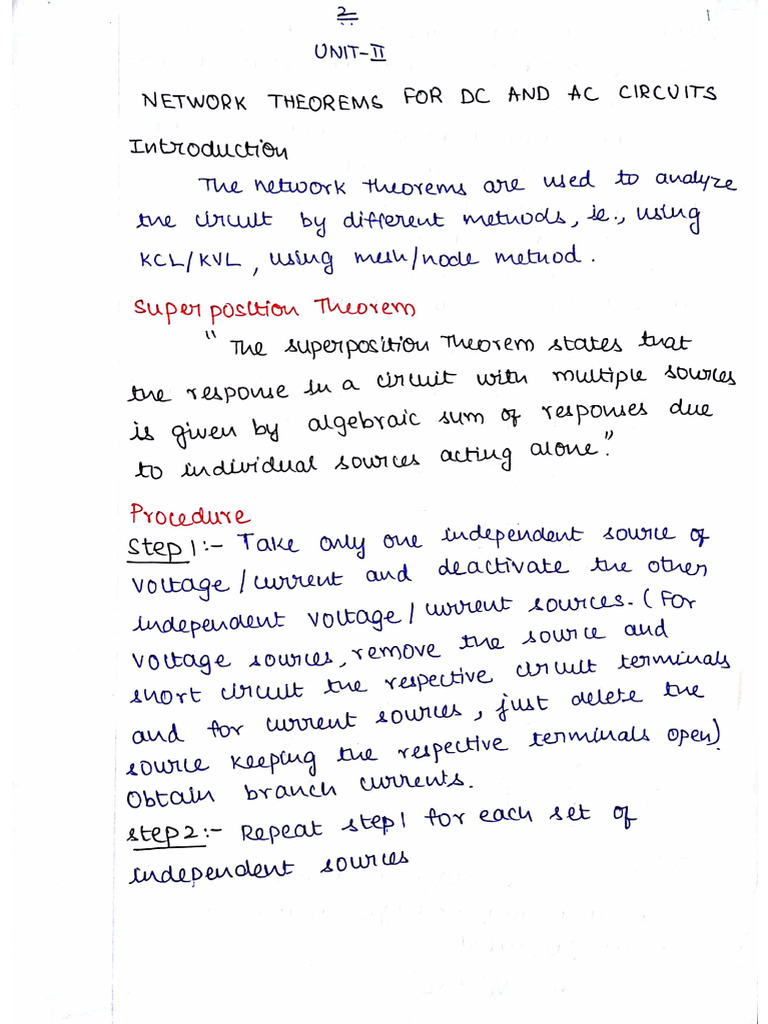 2
1
UNIT-II
NETWORK THEOREMS FOR DC AND AC CIRCUITS
Introduction
The network theorems are used to analyze
the circuit by different methods, ie., using
KCL/KVL, using mesh/node method.
Superposition Theorem
"The superposition Theorem states that
the response in a circuit with multiple sources
is given by algebraic sum of responses due
to individual sources acting alone."
Procedure
Step 1:- Take only one independent source of
voltage/current and deactivate the other
independent voltage/current sources. (For
voltage sources, remove the source and
short circuit the respective circuit terminals
and for current sources, just delete the
source keeping the respective terminals open).
Obtain branch currents.
step 2:- Repeat step 1 for each set of
independent sources